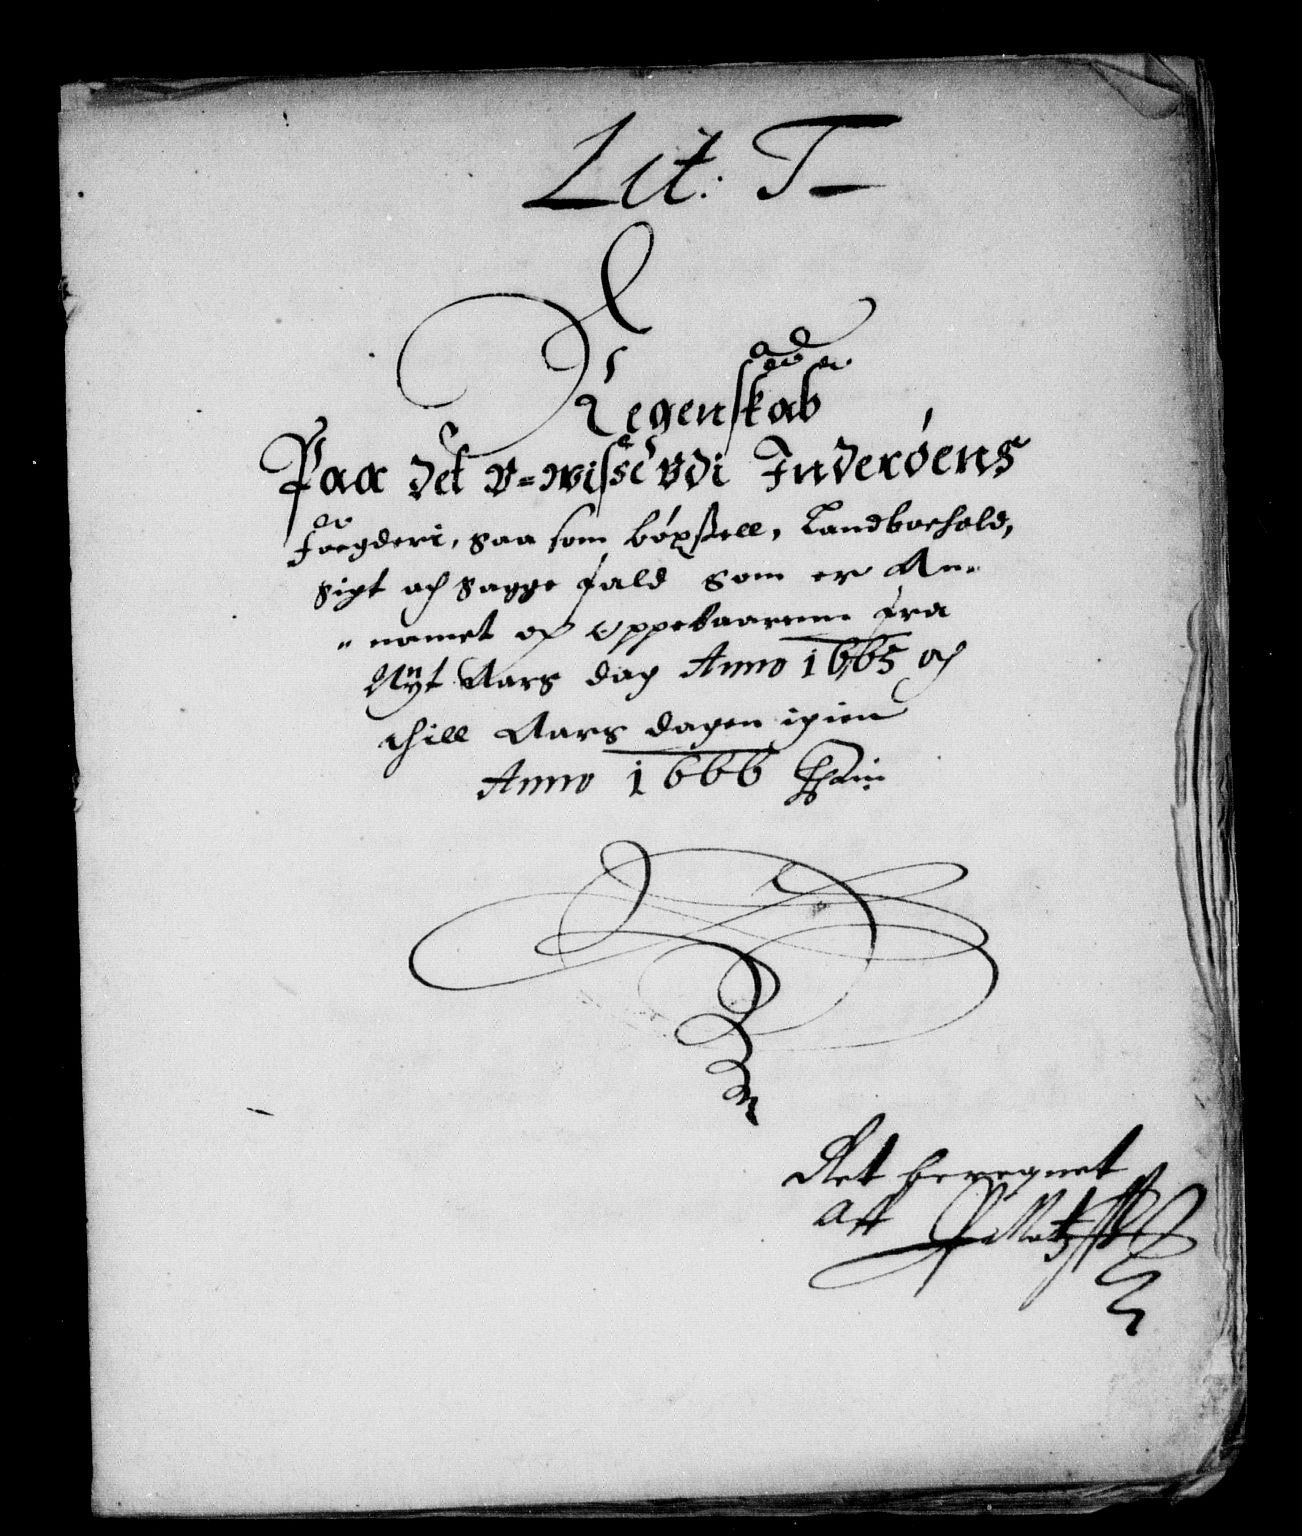 Lit: T
Regenskab
Paa det V=wisse vdi Inderøens
Foegderi, saa som bøxsell, Landboehold,
Sigt och Sagge fald som er An=
=namet och oppebaarenn fra
Nÿt Aars dag Anno 1665 och
thill Aars dagen igien
Anno 1666
Ret beregnet
Aff